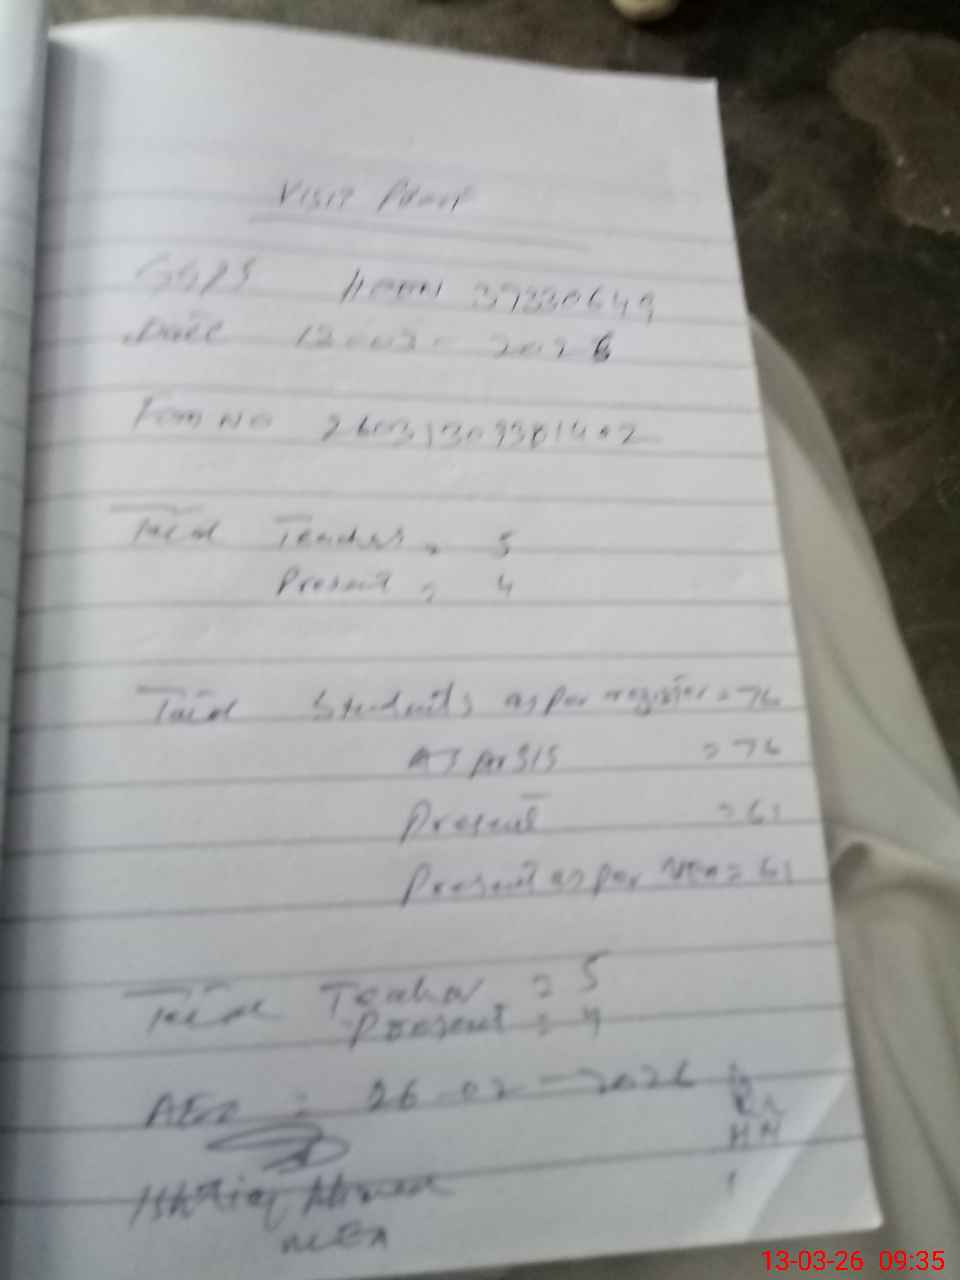 Visit Proof
GGPS 39330649
Date 13-03-2026
Form No 26031309381402
Total Teachers = 5
Present = 4
Total Students as per register = 76
As per SIS = 76
Present = 61
Present as per MEA = 61
Total Teacher = 5
Present = 4
AEO = 26-02-2026
Ishtiaq Ahmed
MEA
13-03-26 09:35